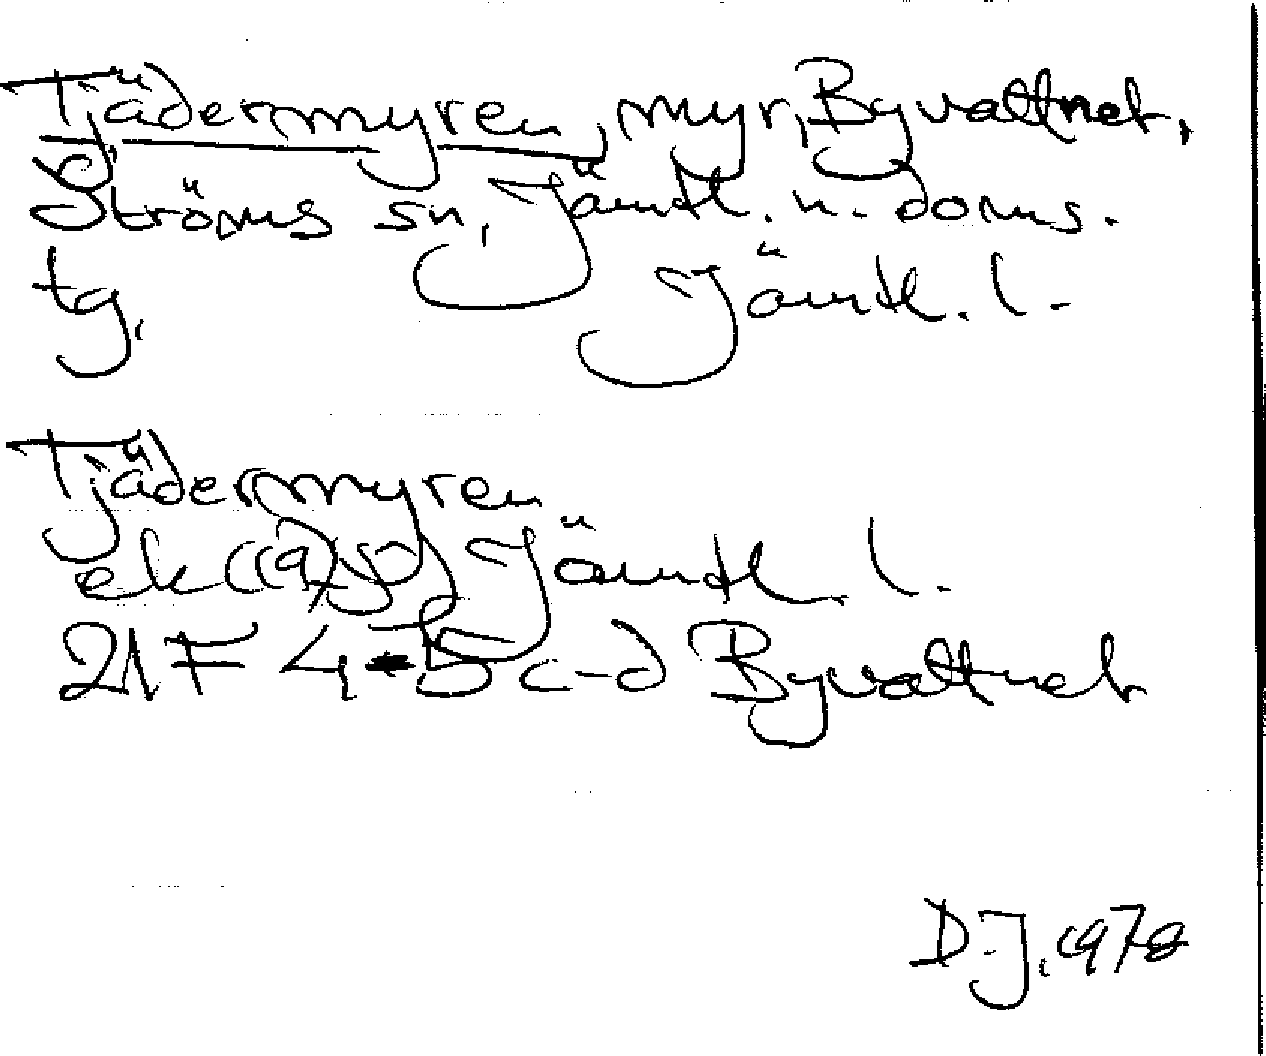 Tjädermyren, myr, Byvattnet,
Ströms sn, Jämtl. n. doms.
tg. Jämtl. l.
Tjädermyren
ek Jämtl. l.
21 F 4-5 c-d Byvattnet
D.J. 1978